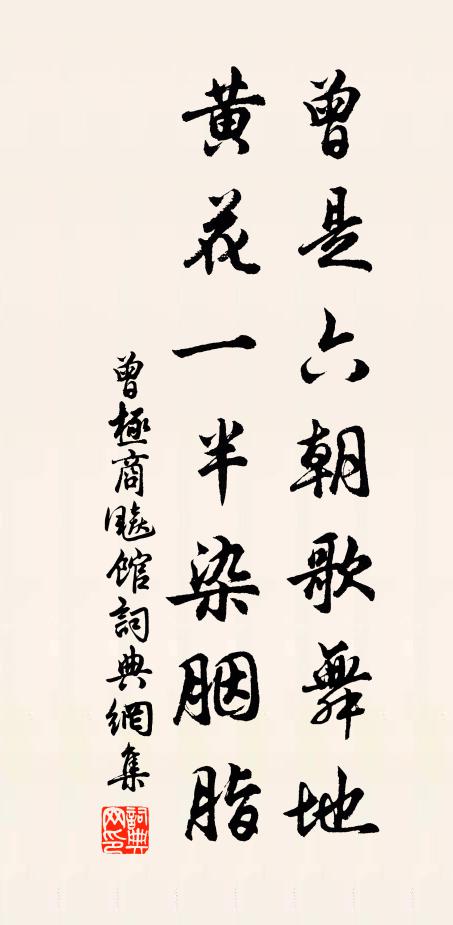 曾是六朝歌舞地
黄花一半染胭脂
曾極商飈館詞典網集
詞典網印